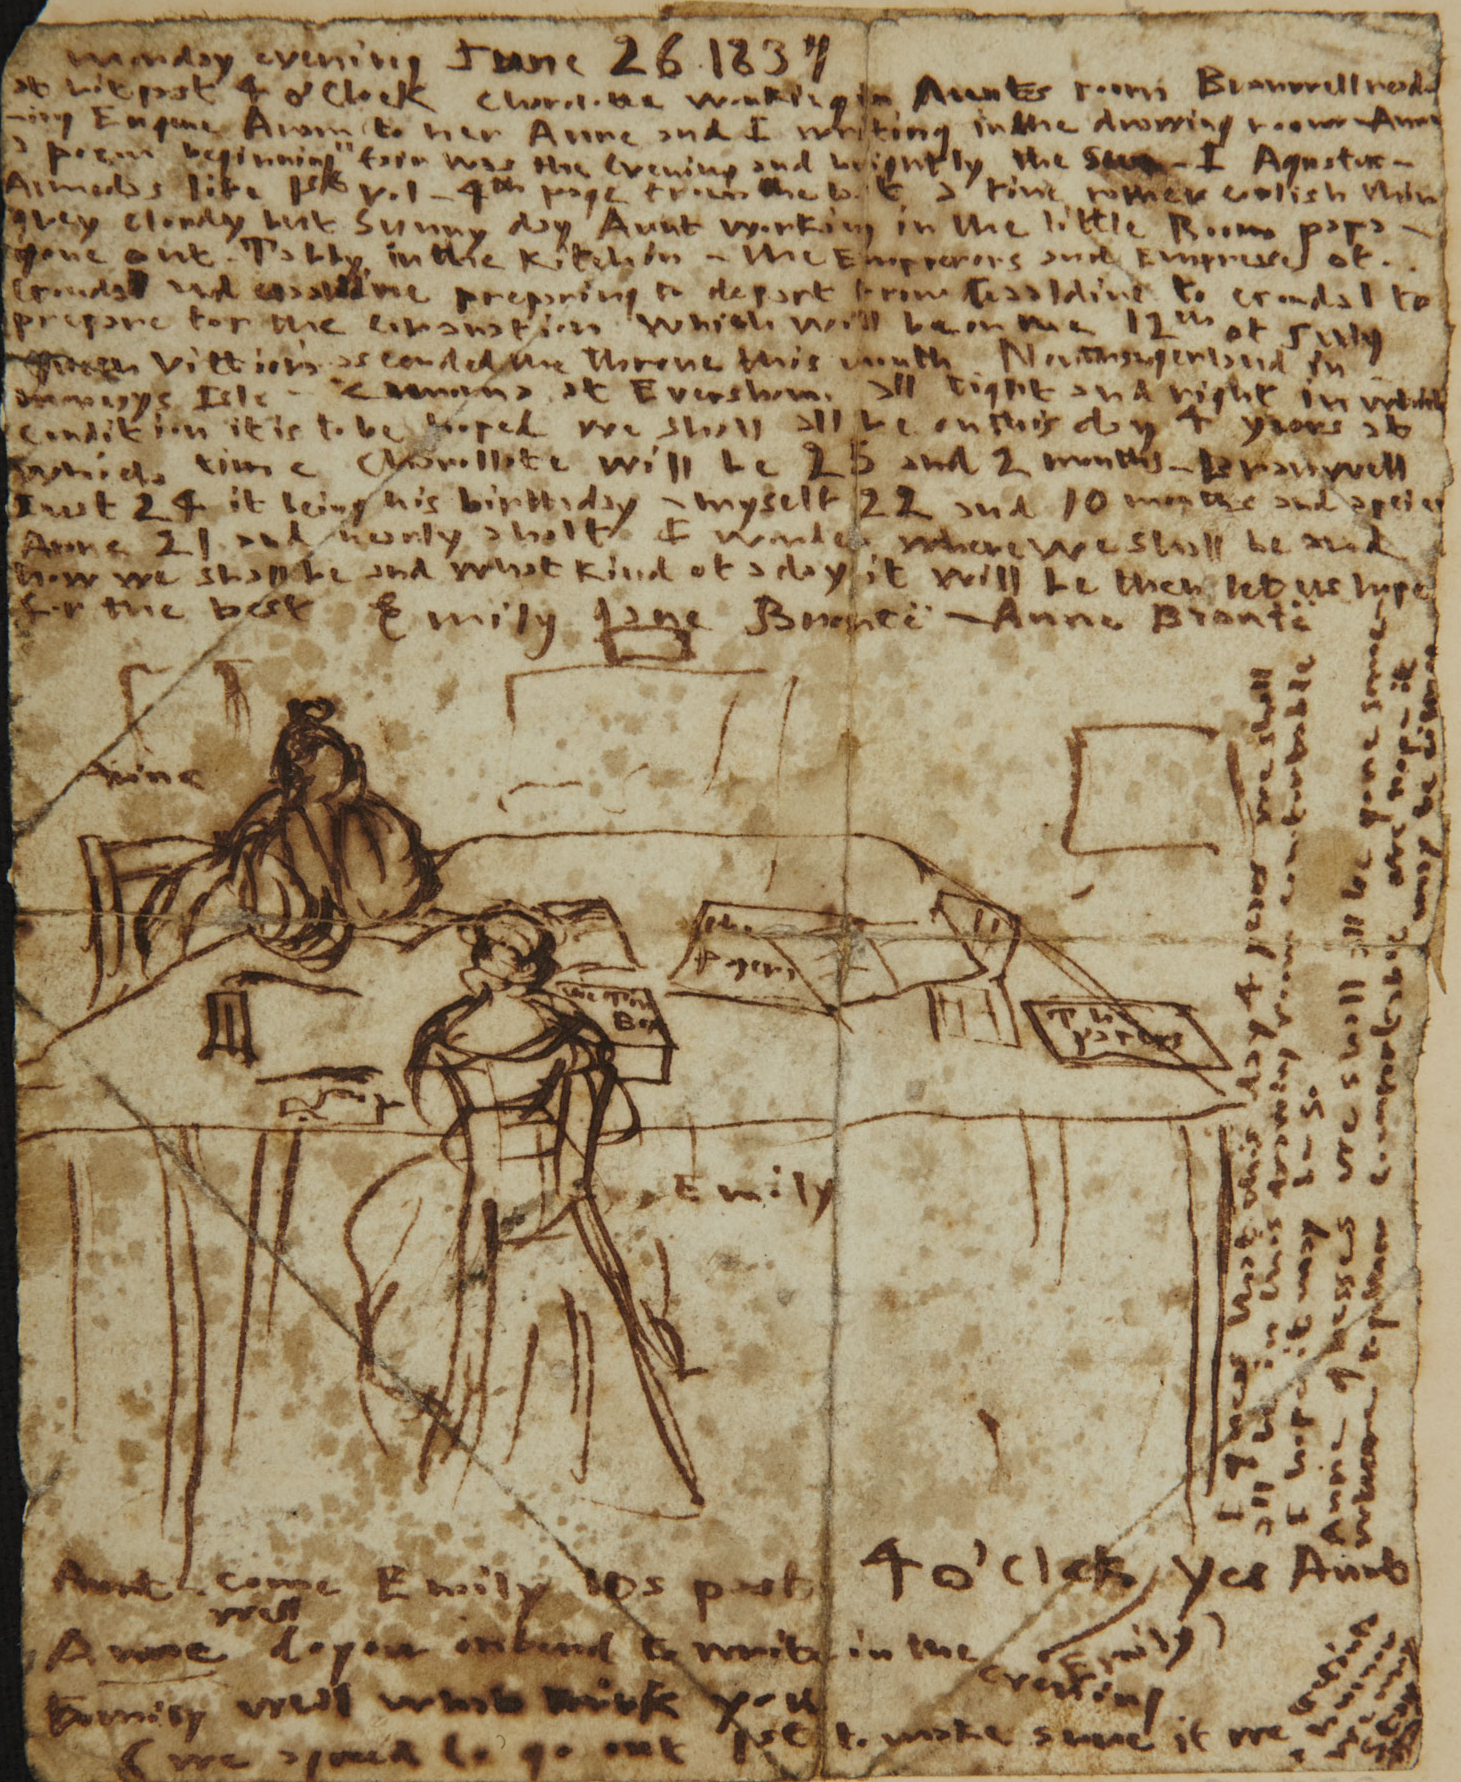 Monday evening June 26 1837
at bit past 4 o'Clock Charolotte working in Aunts room Branwell read-
ing Eugene Aram to her Anne and I writing in the drawing room Anne
a poem beginning "fair was the Evening and brightly the Sun - I Agustus -
Almedas life 1st vol - 4th page from the last a fine rather coolish thin
grey cloudy but Sunny day Aunt working in the little Room papa -
gone out. Tabby in the Kitchin - the Emperors and Empresses of
Gondal and Gaaldine preparing to depart from Gaaldine to Gondal to
prepare for the coranation which will be on the 12th of July
Queen Vittiora ascended the throne this month Northangerland in
Monceys Isle - Zamorna at Eversham. all tight and right in which
condition it is to be hoped we shall all be on this day 4 years at
which time Charollote will be 25 and 2 months - Branwell
Just 24 it being his birthday - myself 22 and 10 months and a peice
Anne 21 and nearly a half I wonder where we shall be and
how we shall be and what kind of a day it will be then let us hope
for the best Emily Jane Brontë - Anne Brontë
Anne
The
papers
The Tin
Box
The
papers
Emily
I guess that this day 4 years we shall
all be in this drawing room comfortable
I hope it may be so.
Anne guesses we shall all be gone somewhere
together comfortable we hope it
may be
Aunt. come Emily Its past 4 o'Clock Yes Aunt
Emily)
Anne well do you intend to write in the
evening
Emily well what think you
(we agreed to go out 1st to make sure if we